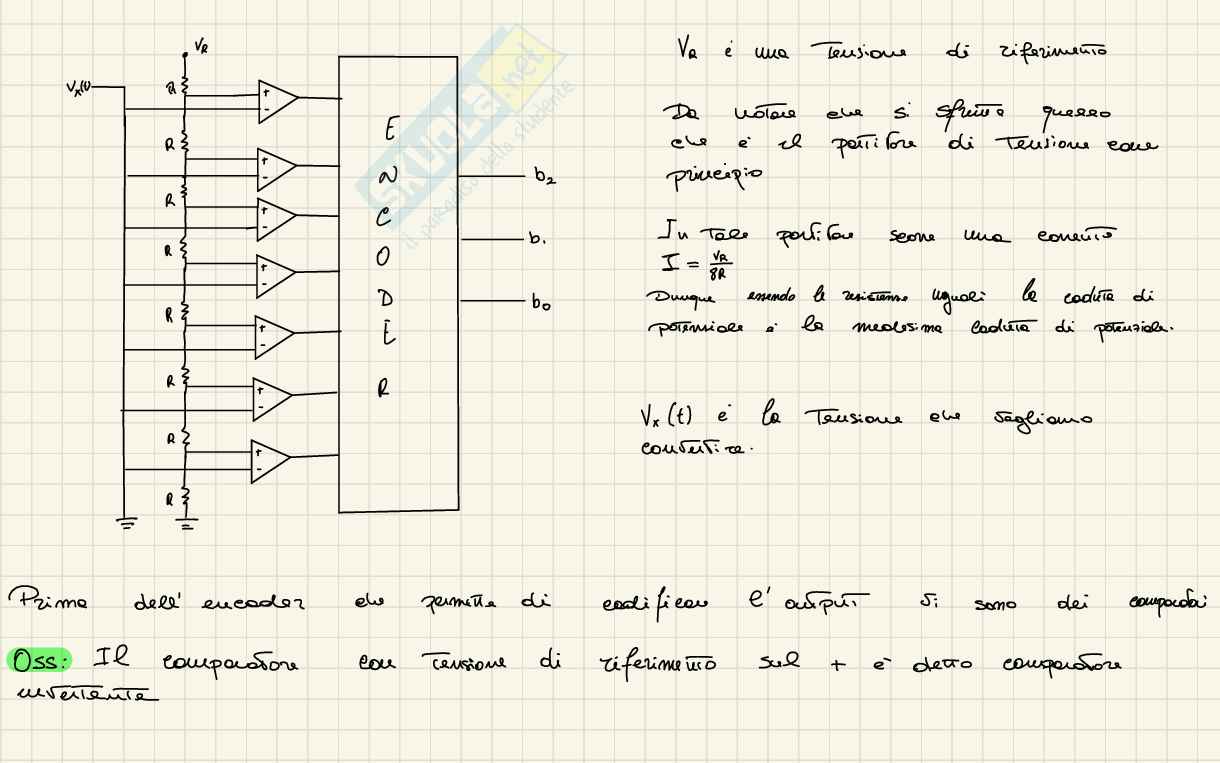 VR
Vx(t)
R
R
R
R
R
R
R
R
+
-
+
-
+
-
+
-
+
-
+
-
+
-
E
N
C
O
D
E
R
b2
b1
b0
SKUOLA.net
il paradiso dello studente
VR è una Tensione di riferimento
Da notare che si sfrutta questo
che è il partitore di Tensione come
principio
In Tale partitore scorre una corrente
I = VR/8R
Dunque essendo le resistenze uguali la caduta di
potenziale è la medesima caduta di potenziale.
Vx(t) è la Tensione che vogliamo
convertire.
Prima dell' encoder che permette di codificare l'output vi sono dei comparatori
Oss: Il comparatore con Tensione di riferimento sul + è detto comparatore
invertente